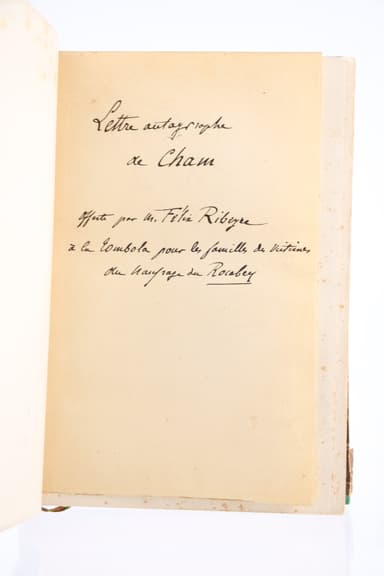 Lettre autographe
de Cham
offerte par M. Félix Ribeyre
à la Tombola pour les familles des victimes
du Naufrage du Rocabey